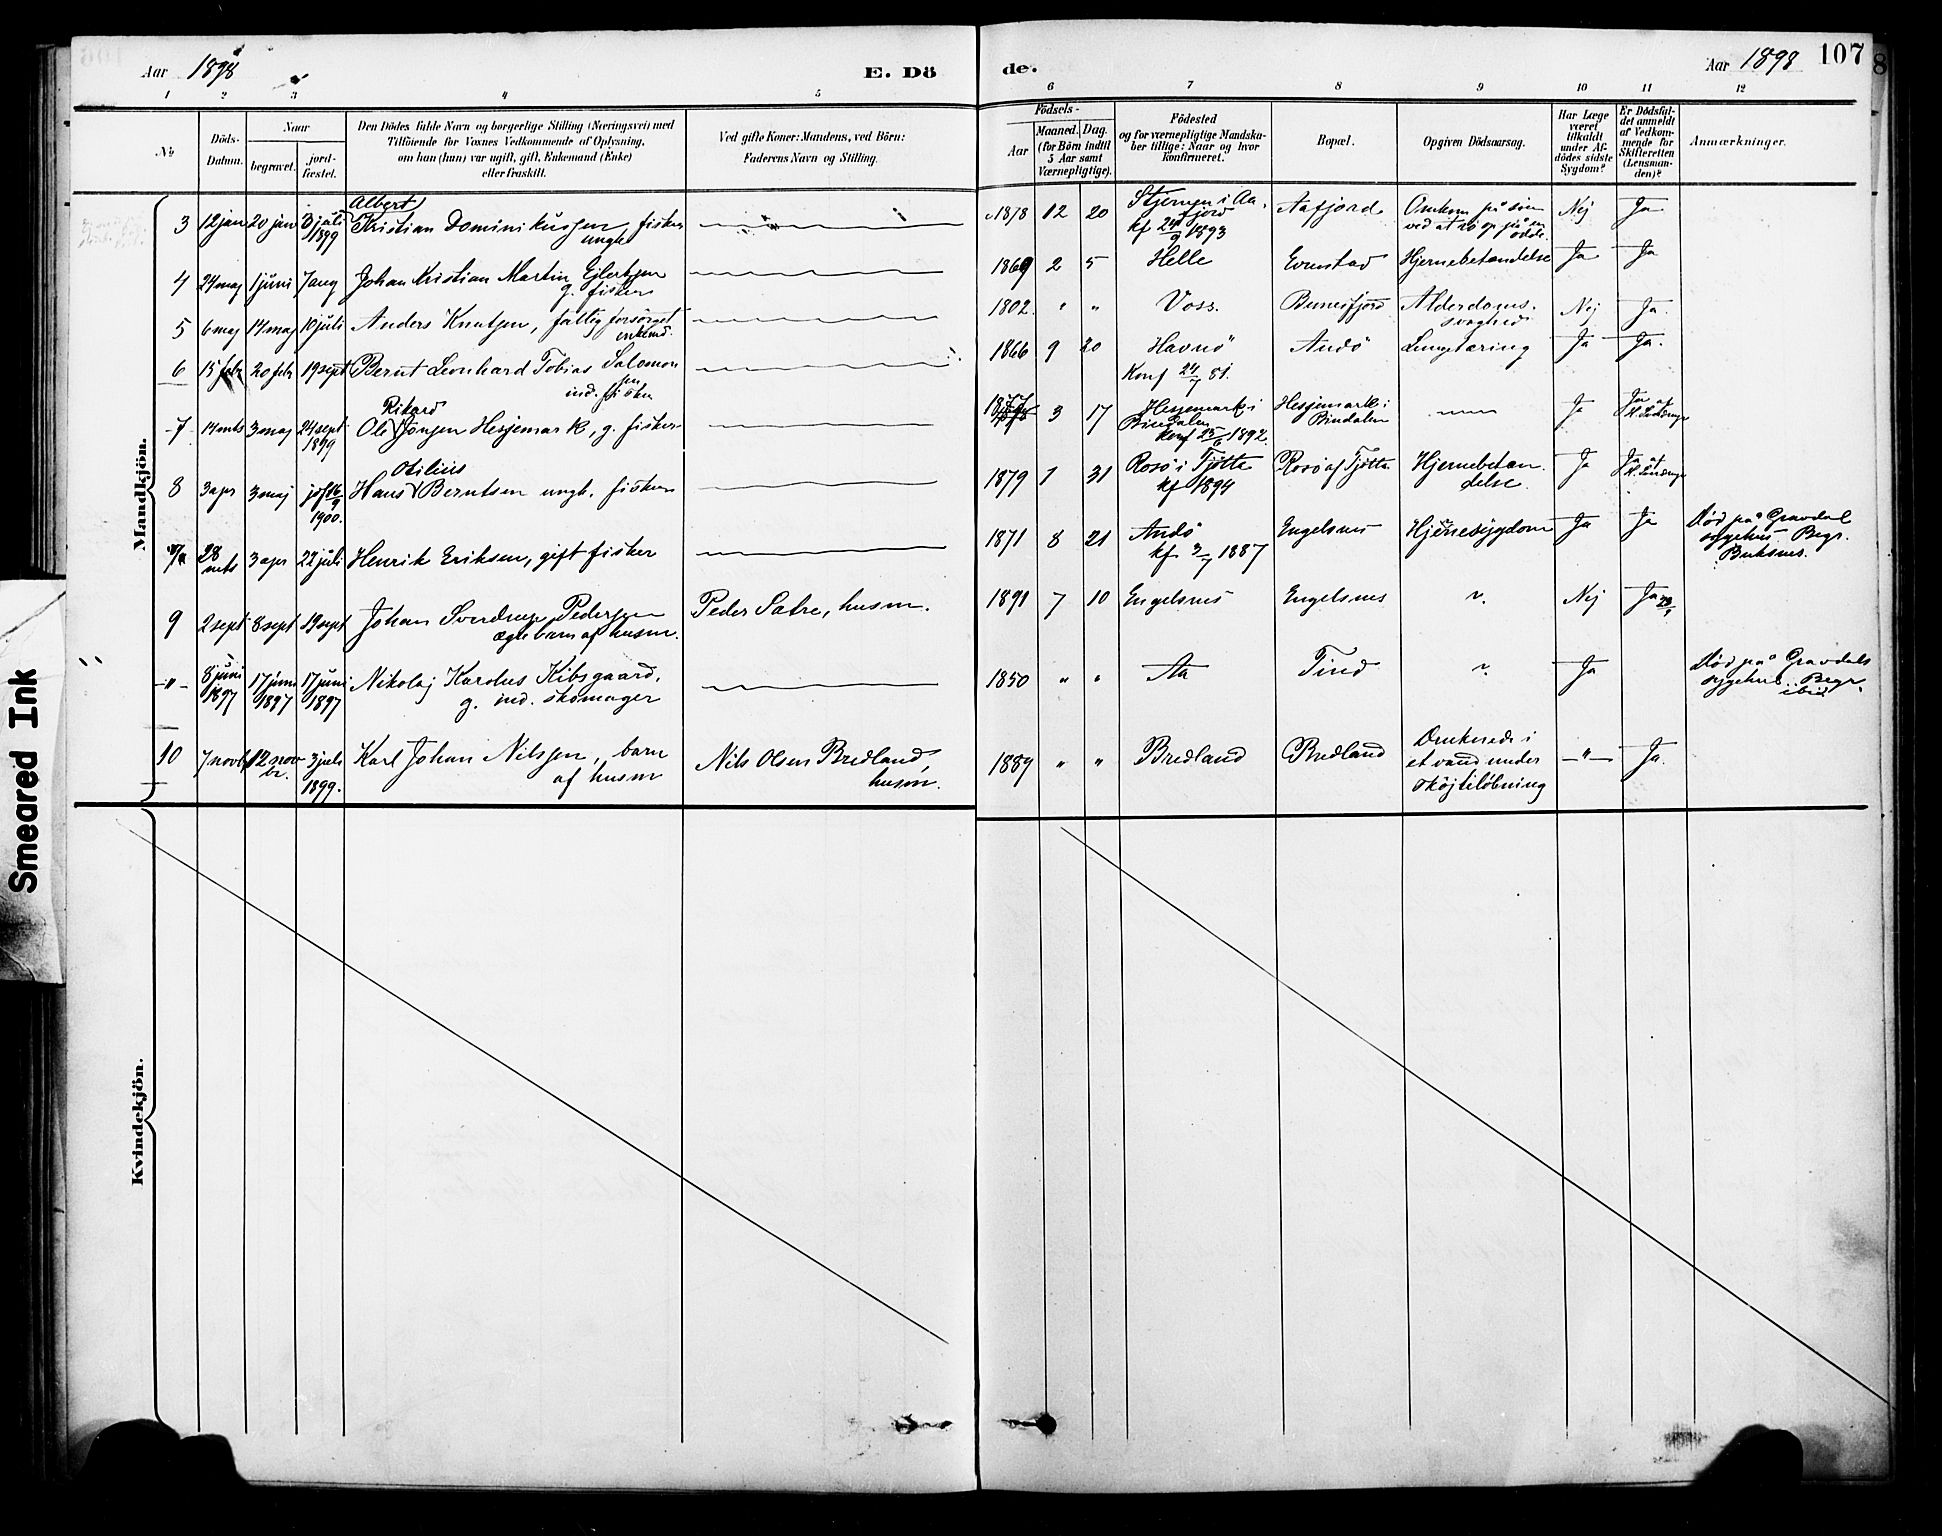 Aar 1898
E. Döde.
Aar 1898
107
1 2 3 4 5 6 7 8 9 10 11 12
No
Döds-Datum.
Naar
begravet.
jord-fæstet.
Den Dödes fulde Navn og borgerlige Stilling (Næringsvei) med
Tilföiende for Voxnes Vedkommende af Oplysning,
om han (hun) var ugift, gift, Enkemand (Enke)
eller fraskilt.
Ved gifte Koner: Mandens, ved Börn:
Faderens Navn og Stilling.
Födsels-
Aar
Maaned. Dag.
(for Börn indtil
5 Aar samt
Værnepligtige).
Födested
og for værnepligtige Mandska-
ber tillige: Naar og hvor
konfirmeret.
Bopæl.
Opgiven Dödsaarsag.
Har Læge
været
tilkaldt
under Af-
dödes sidste
Sygdom?
Er Dödsfal-
det anmeldt
af Vedkom-
mende for
Skifteretten
(Lensman-
den)?
Anmærkninger.
Mandkjön.
3 12 jan 20 jan 3 juli 1899 Albert Kristian Dominikussen, fisker
ungk.
1878 12 20 Stjernen i Aa-
fjord
kf 24/9 1893
Aafjord Omkom på söen
Nej Ja
4 24 maj 1 juni 7 aug Johan Kristian Martin Ejlertsen
g. fisker
1869 2 5 Helle Evenstad Hjernebetændelse Ja Ja
5 6 maj 14 maj 10 juli Anders Knutsen, fattigforsörget
enkemd.
1802 " " Voss. Bunesfjord Alderdoms-
svaghed
Nej Ja.
6 15 febr 20 febr 19 sept Bernt Leonhard Tobias Salomon
sen
ind. fisker
1866 9 20 Havnö Andö Lungetæring Ja Ja.
Konf 24/7 81.
7 14 mts 3 maj 24 sept 1899 Ole Rikard Jonsen Hesjemark, g. fisker
1877 3 17 Hesjemark i
Bindalen
konf 25/6 1892.
Hesjemark i
Bindalen
Ja Ja af
8 3 apr 3 maj jdf 16/9 1900. Hans Otilius Berntsen ungk. fisker
1879 1 31 Rosö i Tjötta
kf 1894
Rosö af Tjötta Hjernebetæn-
delse
Ja Ja af
28 mts 3 apr 22 juli Henrik Eriksen, gift fisker
1871 8 21 Andö
kf 3/7 1887
Engelsnes Hjertesygdom Ja Ja Död på Gravdal
sygehus. Begr.
Buksnes.
9 2 sept 8 sept 19 sept Johan Sverdrup Pedersen
ægte barn af husm.
Peder Satre, husm.
1891 7 10 Engelsnes Engelsnes Nej Ja
-"- 8 juni 1897 17 juni 1897 17 juni 1897 Nikolaj Karolus Kibsgaard,
g. ind. skomager
1850 " " Aa Tind Ja Död på Gravdals
sygehus. Begr.
ibid.
10 7 novb 12 novbr. 3 juli 1899. Karl Johan Nilssen, barn
af husm
Nils Olsen Bredland,
husm.
1889 " " Bredland Bredland Druknede i
et vand under
sköjtelöbning
-"- Ja.
Kvindekjön.
Smeared Ink
8